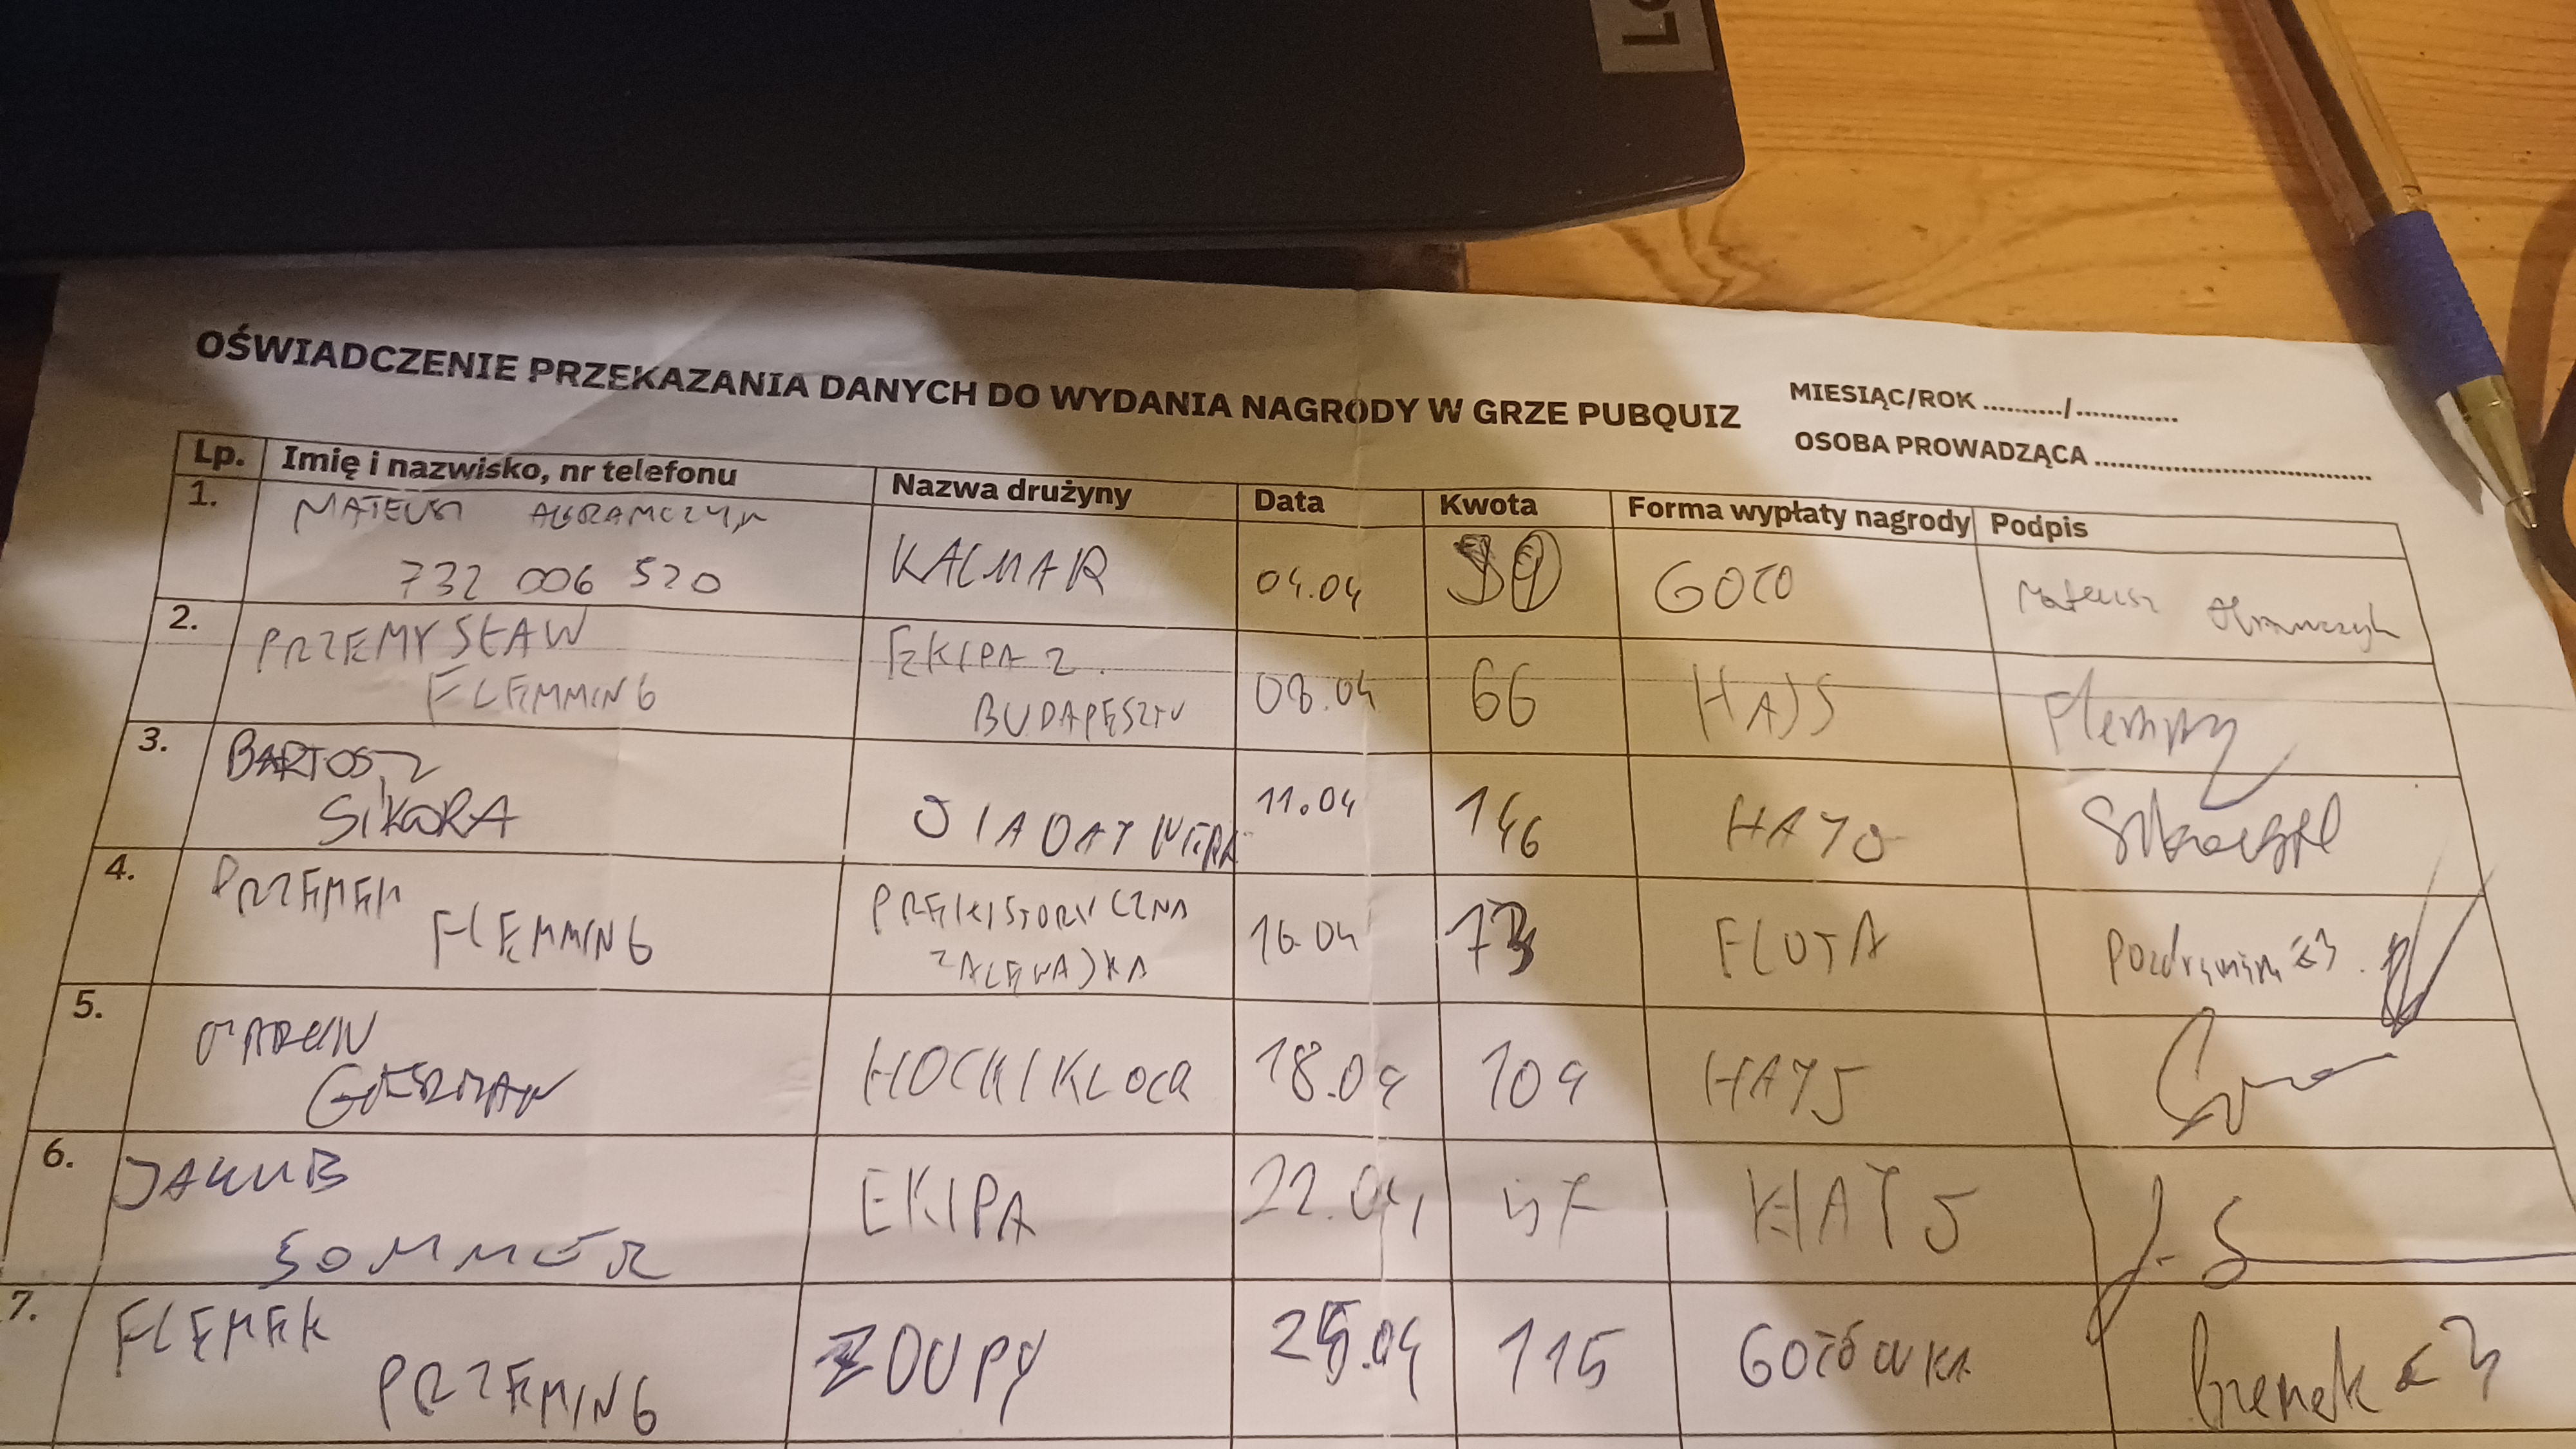 OŚWIADCZENIE PRZEKAZANIA DANYCH DO WYDANIA NAGRODY W GRZE PUBQUIZ
MIESIĄC/ROK ........../.............
OSOBA PROWADZĄCA ..................................
Lp. Imię i nazwisko, nr telefonu Nazwa drużyny Data Kwota Forma wypłaty nagrody Podpis
1. MATEUSZ
732 006 520 KALMAR 04.04 GOTO Mateusz
2. PRZEMYSŁAW
FLEMMING EKIPA Z
BUDAPESZTU 08.04 66 HAJS
3. BARTOSZ
SIKORA 11.04 146 HAJS
4. PRZEMEK
FLEMMING PREHISTORYCZNA
ZALEWAJKA 16.04 FLOTA Pozdrawiam <3
5. MARCIN
HOCKI KLOCR 18.04 109 HAJS
6. JAKUB
SOMMER EKIPA 22.04 HAJS J. S
7. FLEMEK
PRZEMING ZOUPY 25.04 115 GOTÓWKA Przemek <3